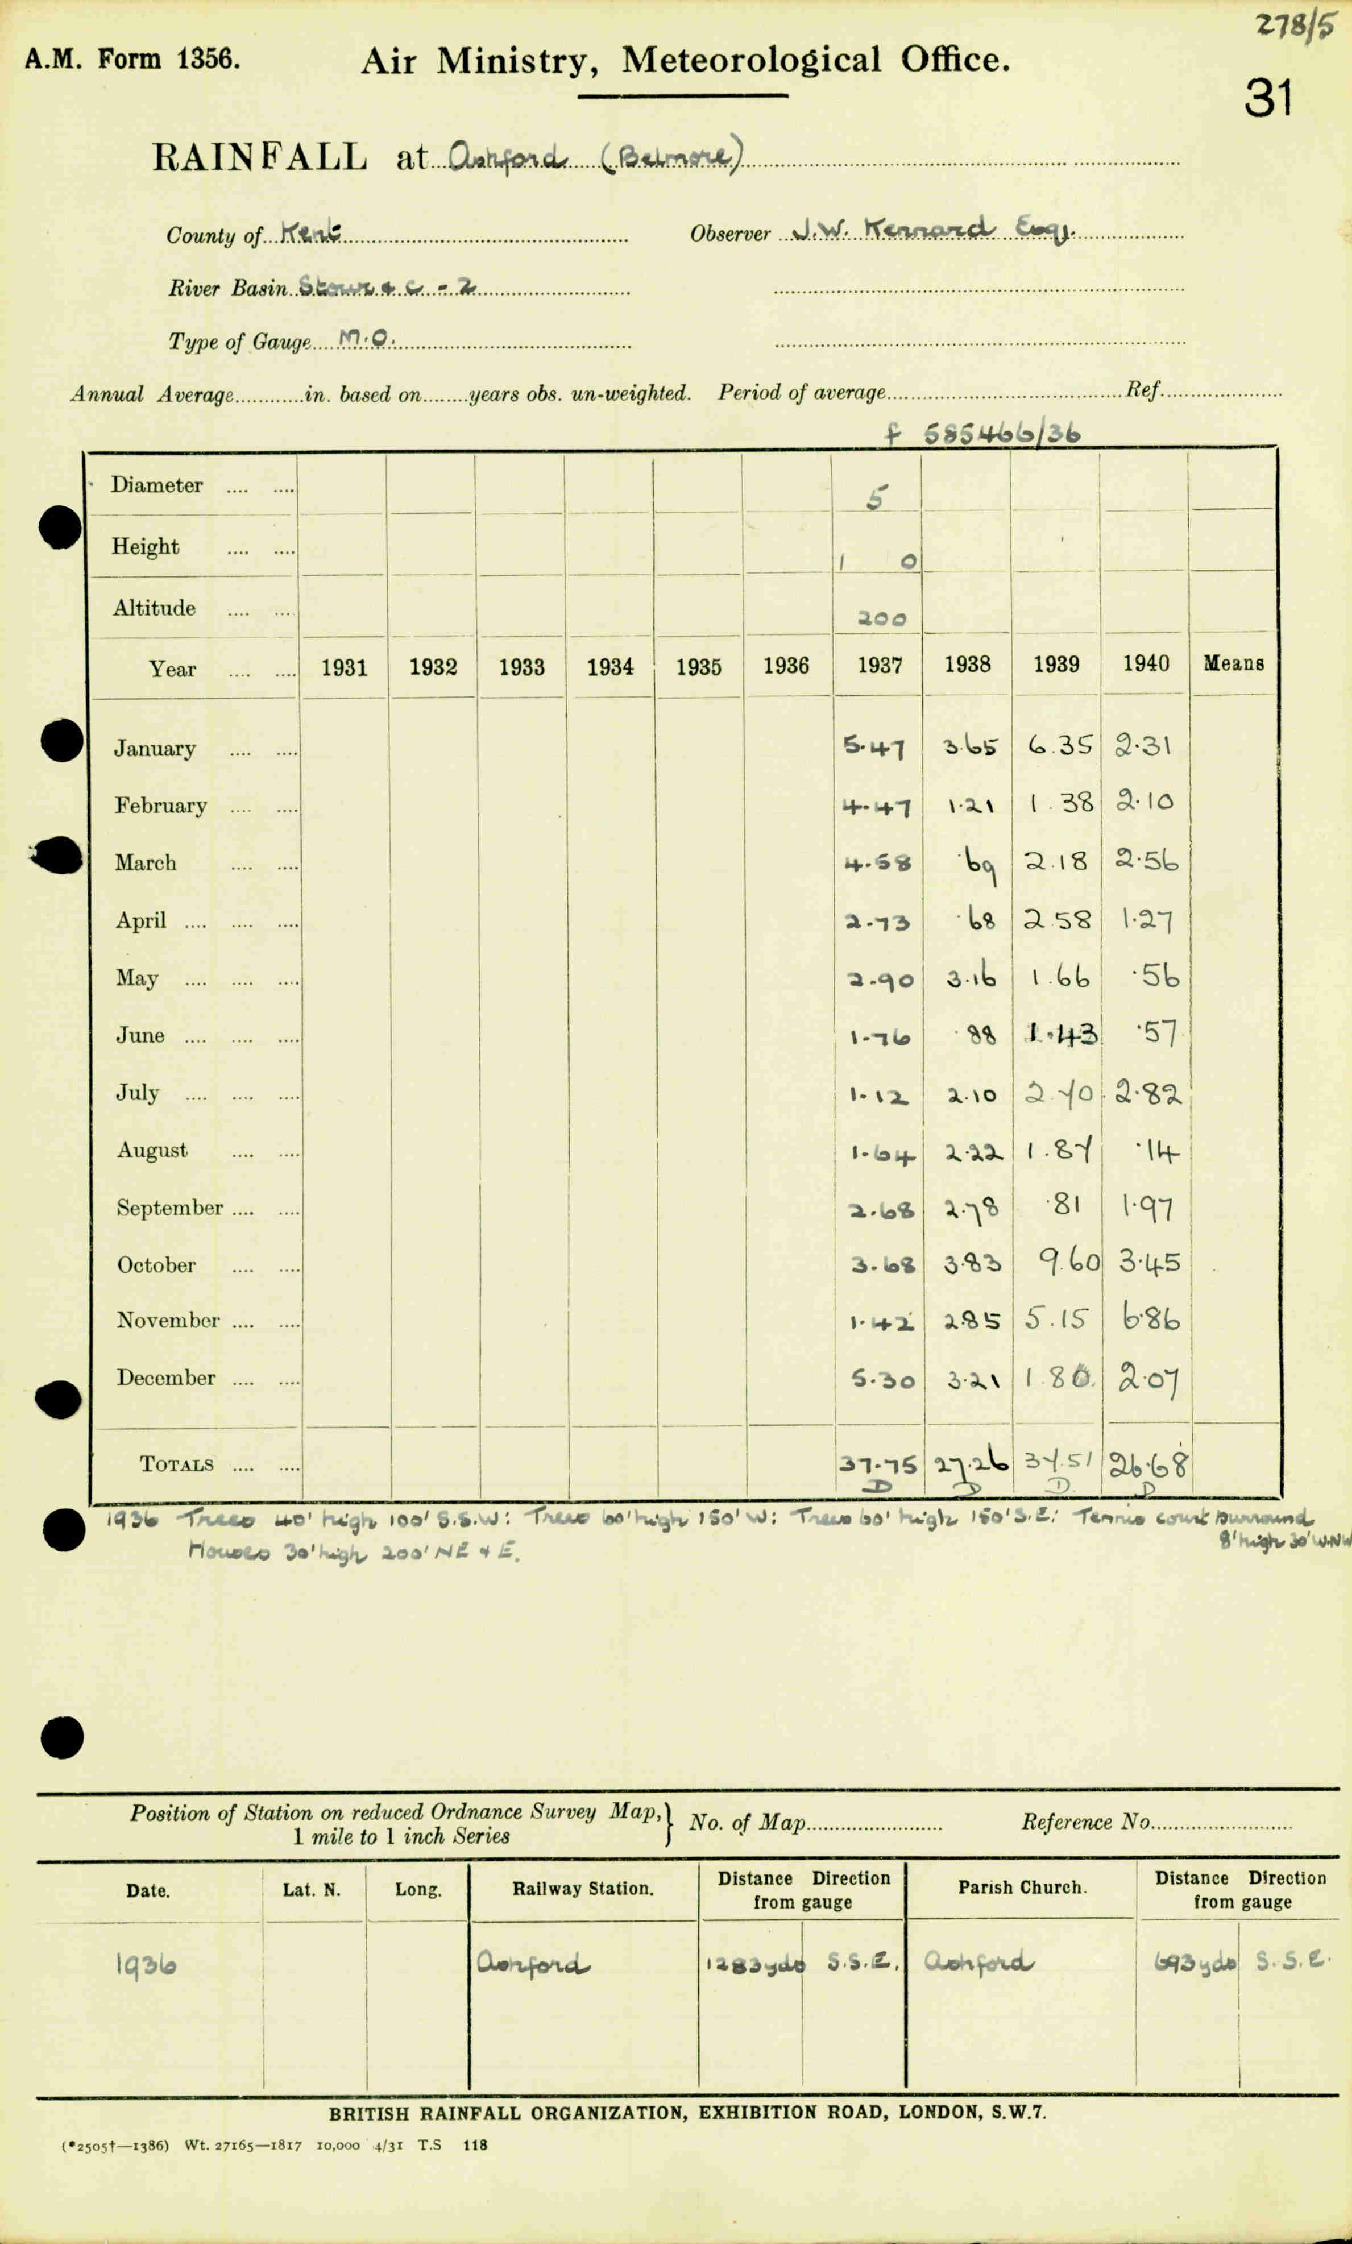 278/5
A.M. Form 1356. Air Ministry, Meteorological Office.
31
RAINFALL at Ashford (Belmore)
County of Kent Observer J.W. Kennard Esq.
River Basin Stour & C - 2
Type of Gauge M.O.
Annual Average in. based on years obs. un-weighted. Period of average Ref.
f 585466/36
Diameter 5
Height 1 0
Altitude 200
Year 1931 1932 1933 1934 1935 1936 1937 1938 1939 1940 Means
January 5.47 3.65 6.35 2.31
February 4.47 1.21 1.38 2.10
March 4.58 .69 2.18 2.56
April 2.73 .68 2.58 1.27
May 2.90 3.16 1.66 .56
June 1.76 .88 1.43 .57
July 1.12 2.10 2.40 2.82
August 1.64 2.22 1.84 .14
September 2.68 2.78 .81 1.97
October 3.68 3.83 9.60 3.45
November 1.42 2.85 5.15 6.86
December 5.30 3.21 1.80 2.07
TOTALS 37.75 27.26 34.51 26.68
D D D D
1936 Trees 40' high 100' S.S.W: Trees 60' high 150' W: Trees 60' high 150' S.E: Tennis court surround
8' high 30' W.NW
Houses 30' high 200' NE & E.
Position of Station on reduced Ordnance Survey Map, 1 mile to 1 inch Series No. of Map Reference No.
Date. Lat. N. Long. Railway Station. Distance Direction from gauge Parish Church. Distance Direction from gauge
1936 Ashford 1283yds S.S.E. Ashford 693yds S.S.E.
BRITISH RAINFALL ORGANIZATION, EXHIBITION ROAD, LONDON, S.W.7.
(*2505†—1386) Wt. 27165—1817 10,000 4/31 T.S 118